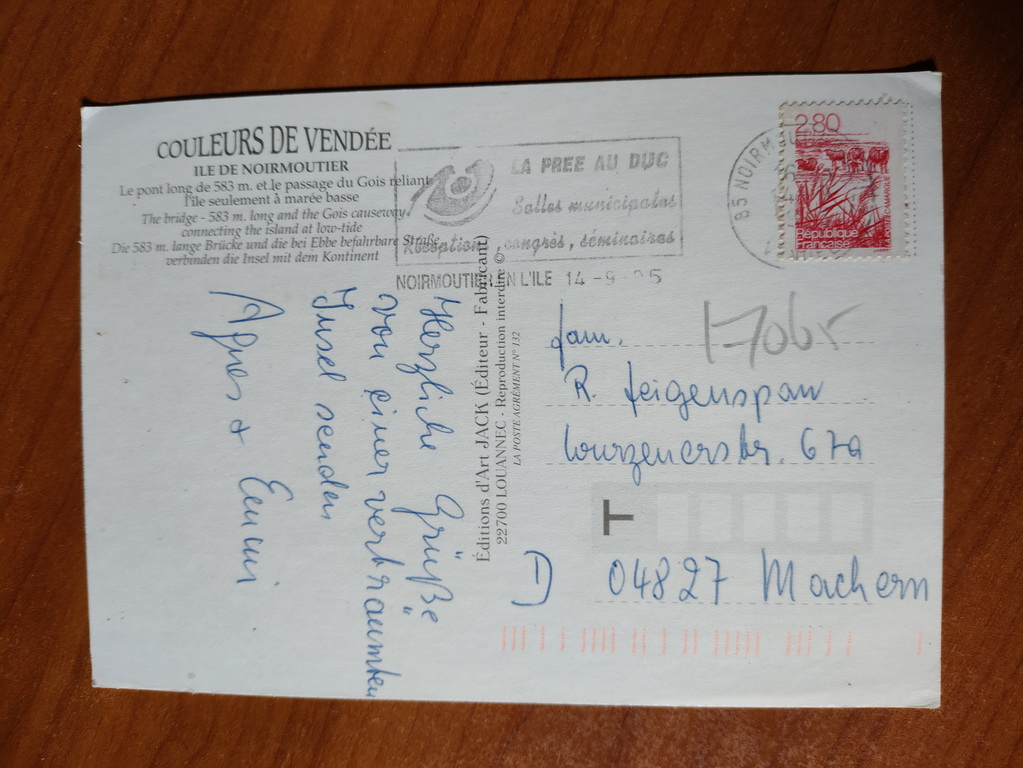 COULEURS DE VENDÉE
ILE DE NOIRMOUTIER
Le pont long de 583 m. et le passage du Gois reliant
l'île seulement à marée basse
The bridge - 583 m. long and the Gois causeway
connecting the island at low-tide
Die 583 m. lange Brücke und die bei Ebbe befahrbare Straße
verbinden die Insel mit dem Kontinent
LA PREE AU DUC
Salles municipales
Réception, congrès, séminaires
NOIRMOUTIER EN L'ILE 14-9 95
85 NOIRM
2,80
République
Française
Herzliche Grüße
von einer verträumten
Insel senden
Agnes +
Éditions d'Art JACK (Éditeur - Fabricant)
22700 LOUANNEC - Reproduction interdite ©
LA POSTE AGRÉMENT N° 132
17065
Fam.
R. Feigenspan
Wurzenerstr. 67a
T
D 04827 Machern